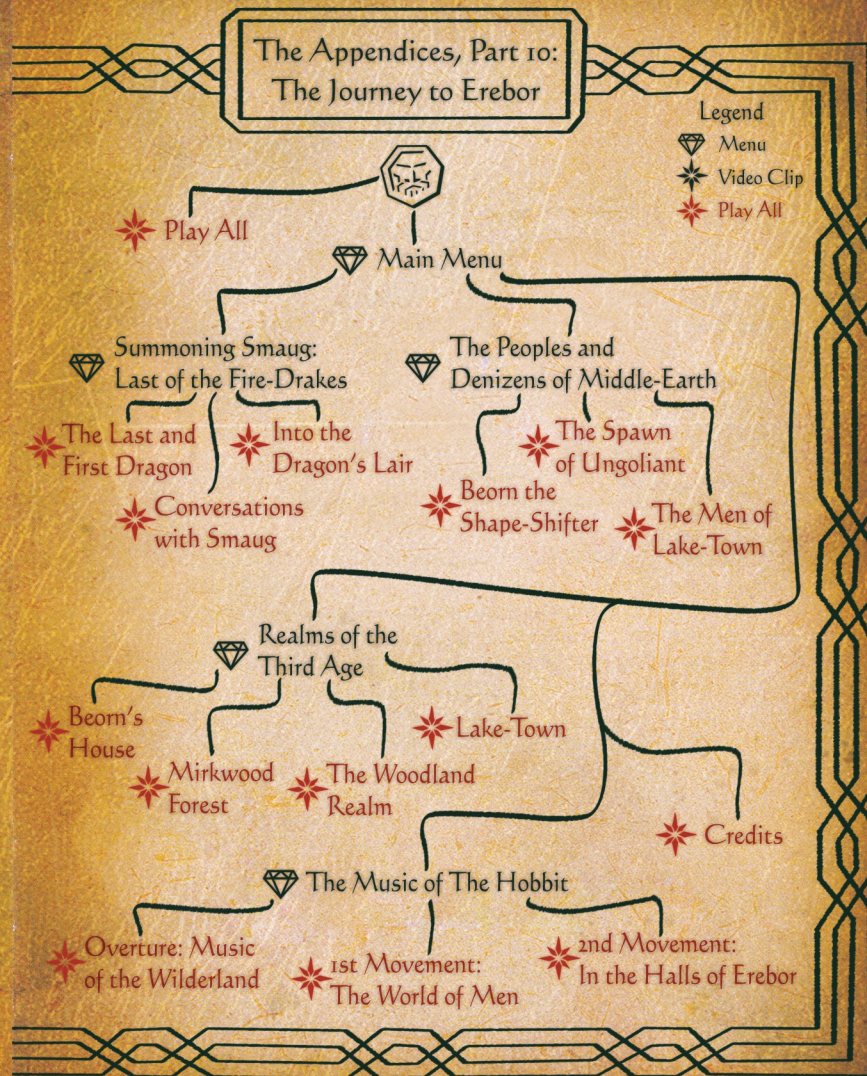 The Appendices, Part 10:
The Journey to Erebor
Legend
Menu
Video Clip
Play All
Play All
Main Menu
Summoning Smaug:
Last of the Fire-Drakes
The Peoples and
Denizens of Middle-Earth
The Last and
First Dragon
Into the
Dragon's Lair
Conversations
with Smaug
The Spawn
of Ungoliant
Beorn the
Shape-Shifter
The Men of
Lake-Town
Realms of the
Third Age
Beorn's
House
Lake-Town
Mirkwood
Forest
The Woodland
Realm
Credits
The Music of The Hobbit
Overture: Music
of the Wilderland
1st Movement:
The World of Men
2nd Movement:
In the Halls of Erebor